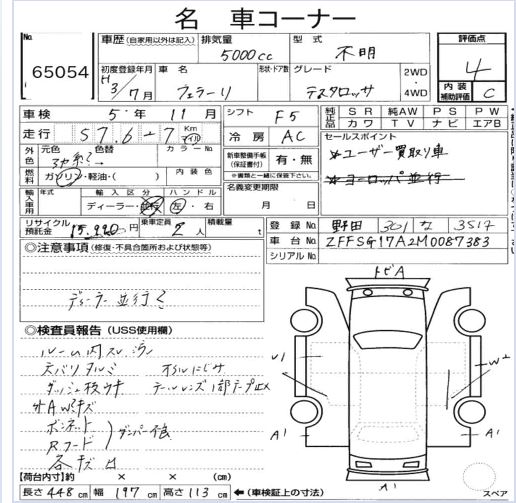 名 車コーナー
No. 65054
車歴 (自家用以外は記入)
排気量 5000cc
型式 不明
評価点 4
初度登録年月 H3/7月
車名 フェラーリ
形状・ドア数
グレード テスタロッサ
2WD・4WD
内装補助評価 C
車検 5年 11月
シフト F5
純正品 SR 純AW PS PW カワ TV ナビ エアB
走行 57,6-7 Km マイル
冷房 AC
セールスポイント
外色 元色 色替 カラーNo
新車整備手帳(保証書付) 有・無
※書類と一緒に保管下さい。
★ユーザー買取り車
燃料 ガソリン・軽油・( ) 内装色
★ヨーロッパ並行
名義変更期限 月 日
輸入車用 年式 輸入区分 ハンドル
ディーラー・並行 左・右
リサイクル預託金 15,920円
乗車定員 2人
積載量 t
登録No 野田 301 な 3517
車台No ZFFSG17A2M0087383
シリアルNo
◎注意事項 (修復・不具合箇所および状態等)
ディーラー並行
トビA
◎検査員報告 (USS使用欄)
ルーム内スレ
天バリタルミ
ダッシュ板ウキ テールレンズ1部テープ止メ
外AWキズ
ボンネット
Rフード
ダンパー不良
各キズ凹
U1
W2
A1
A1
A1
【荷台内寸】約 × × (cm)
長さ 448 cm 幅 197 cm 高さ 113 cm ←(車検証上の寸法)
スペア